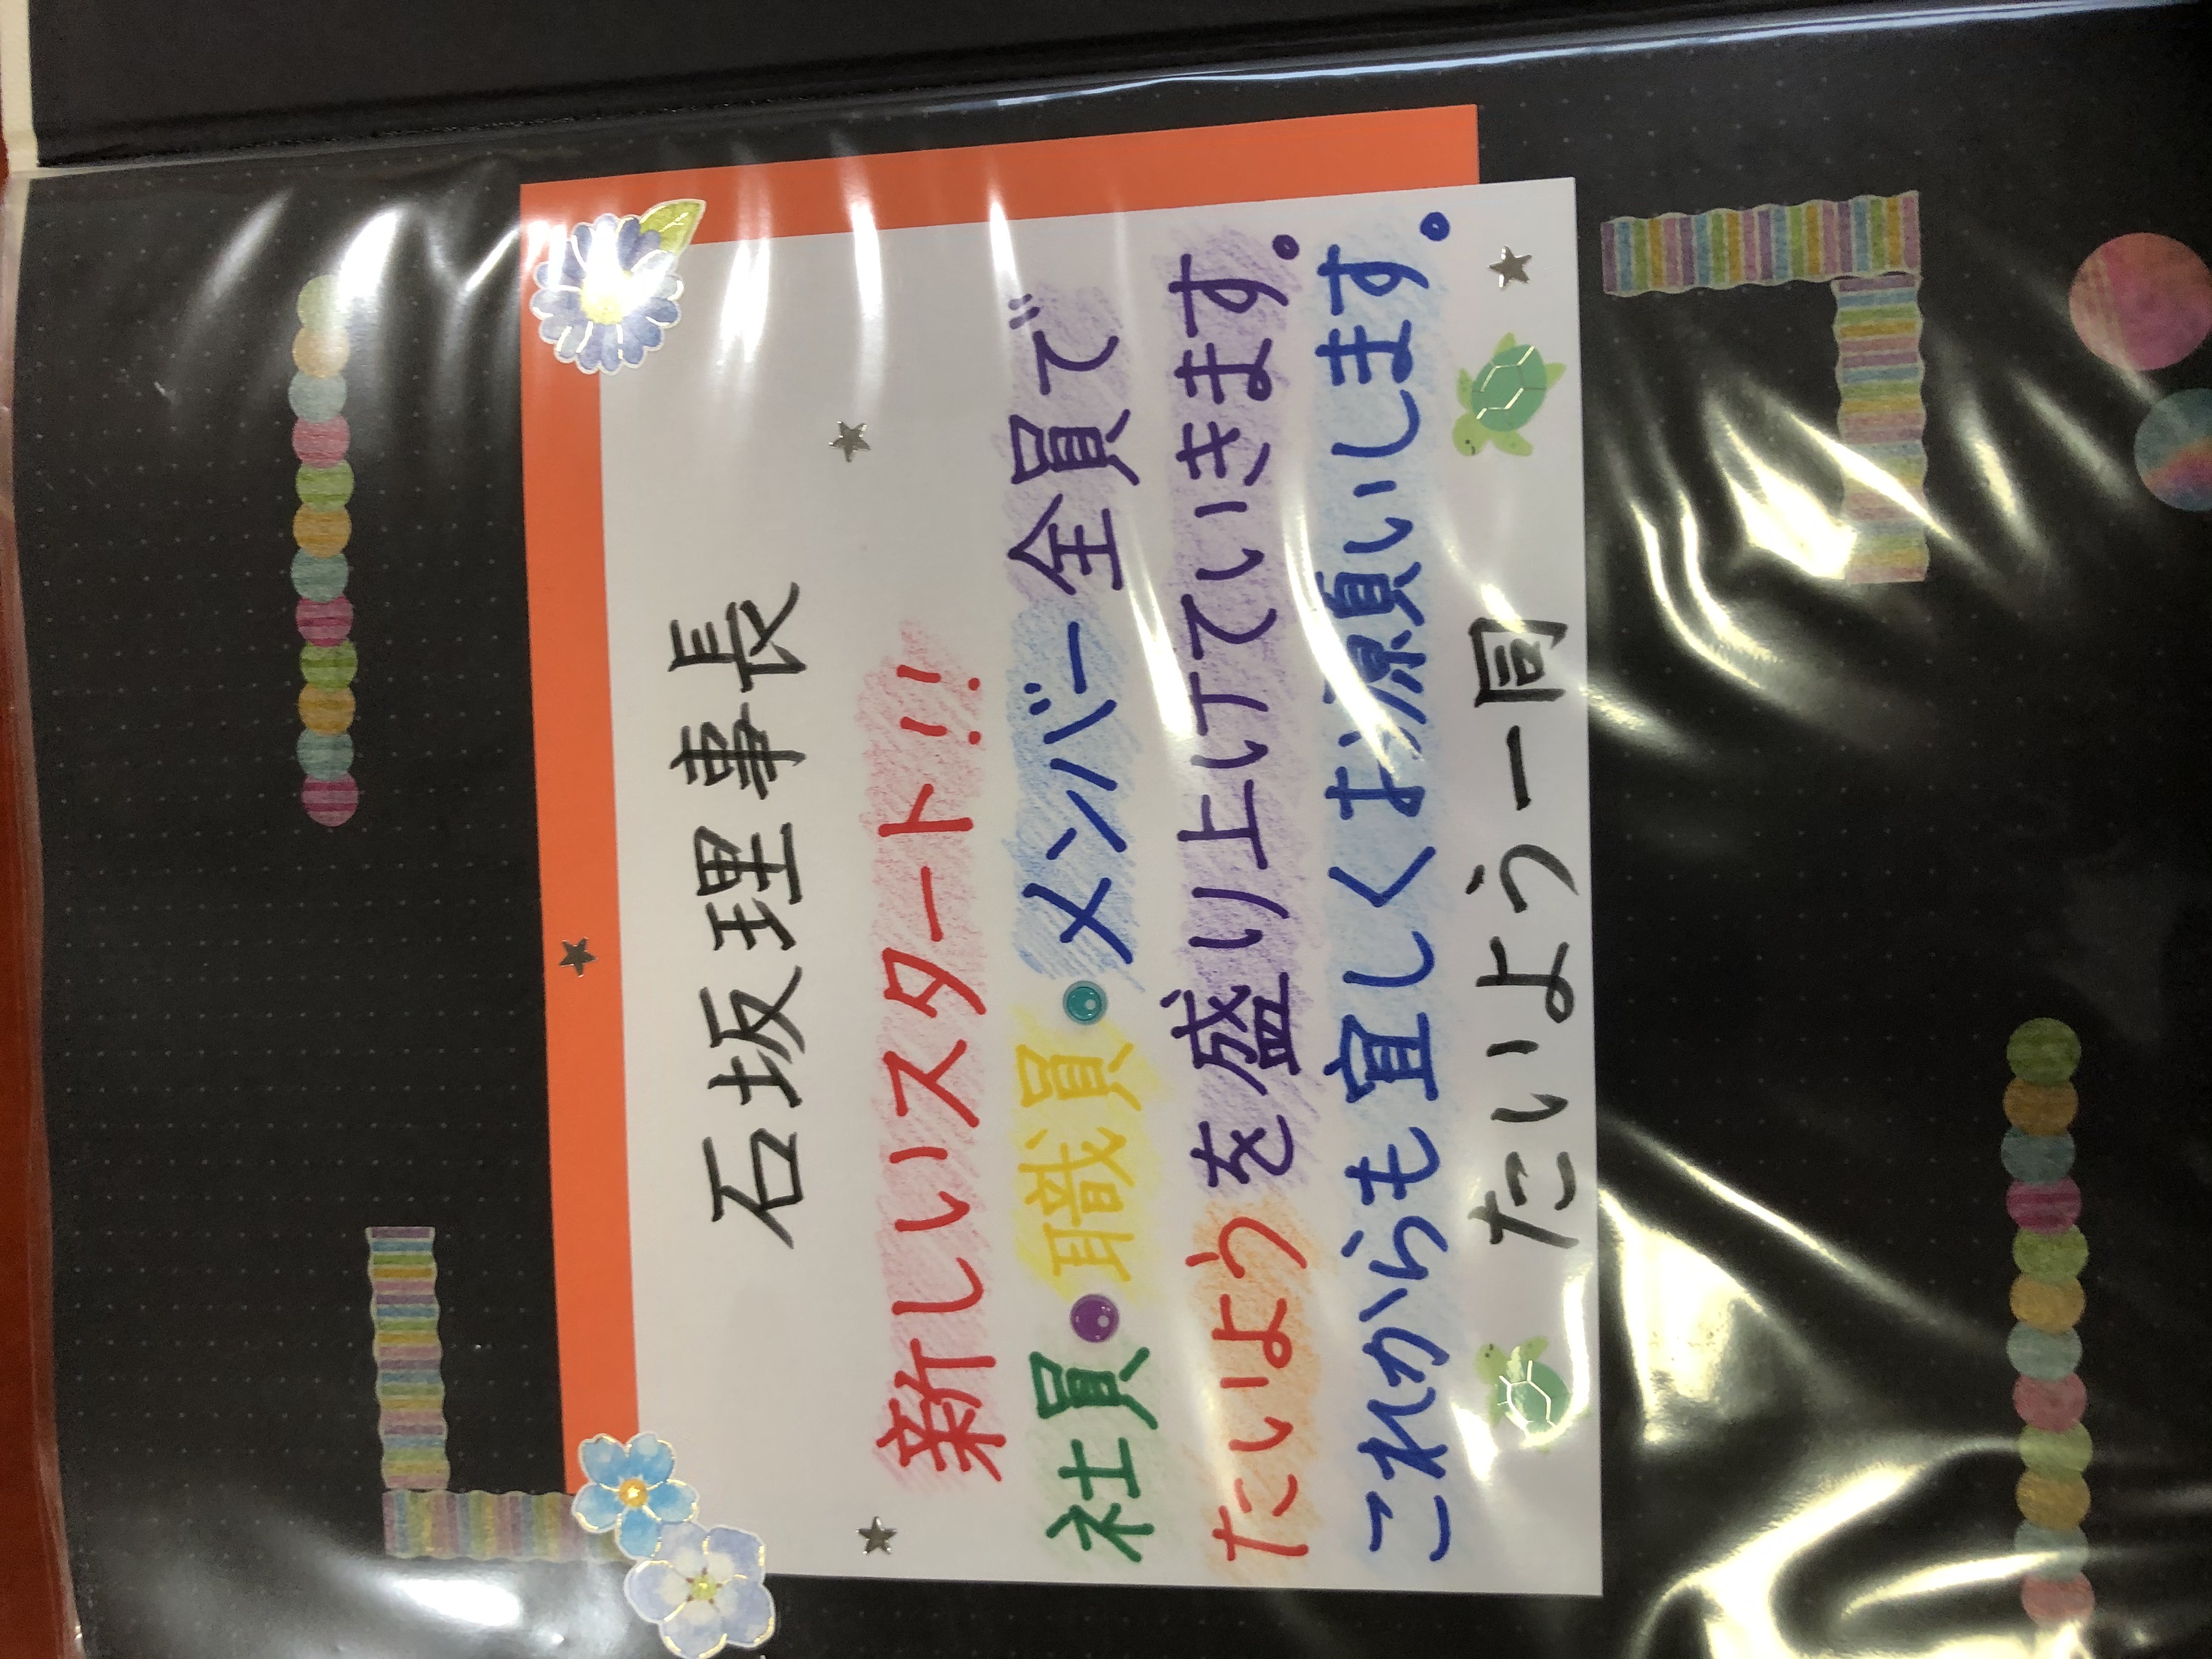 石坂理事長
新しいスタート!!
社員●職員●メンバー全員で
たいようを盛り上げていきます。
これからも宜しくお願いします。
たいよう一同